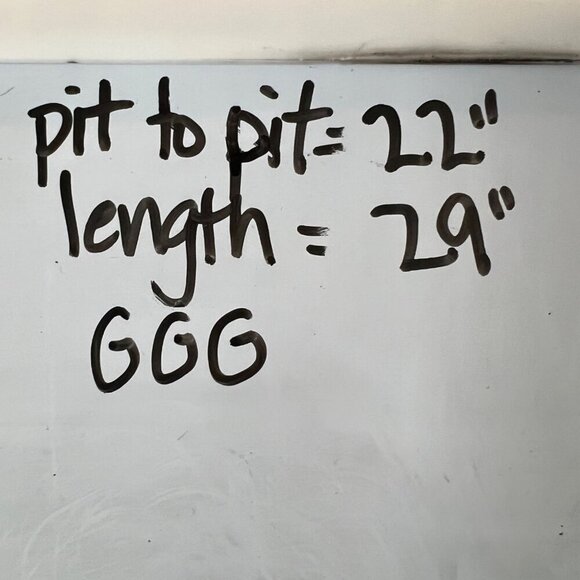 pit to pit = 22"
length = 29"
GGG